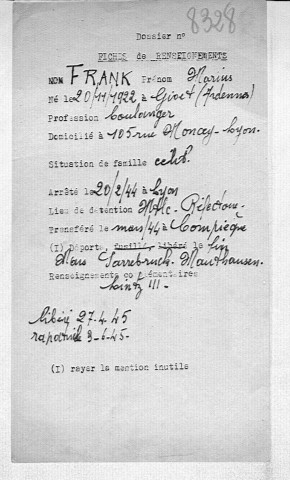 8328
Dossier n°
FICHES de RENSEIGNEMENTS
NOM FRANK Prénom Marius
Né le 20/11/1922 à Givet (Ardennes)
Profession boulanger
Domicilié à 105 rue Moncey - Lyon.
Situation de famille celib.
Arrêté le 20/2/44 à Lyon
Lieu de détention - Réfectoire -
Transféré le mars/44 à Compiègne
(I) Déporté, fusillé, libéré le fin
Mars Sarrebruck - Mauthausen.
Renseignements complémentaires
Lintz III -
libéré 27-4-45
rapatrié 3-6-45-
(I) rayer la mention inutile